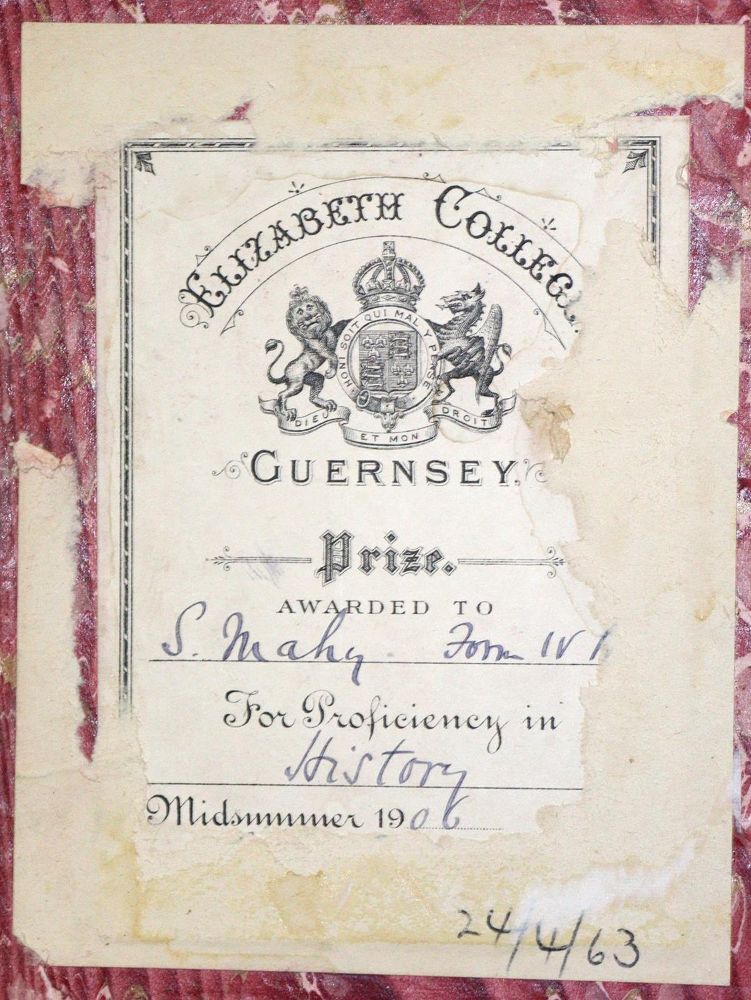 ELIZABETH COLLEG
HONI SOIT QUI MAL Y PENSE
DIEU ET MON DROIT
GUERNSEY.
Prize.
AWARDED TO
S. Mahy. Form IV
For Proficiency in
History
Midsummer 1906
24/4/63